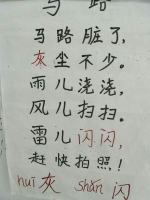 马路
马路脏了，
灰尘不少。
雨儿浇浇，
风儿扫扫。
雷儿闪闪，
赶快拍照！
huī灰 shǎn闪